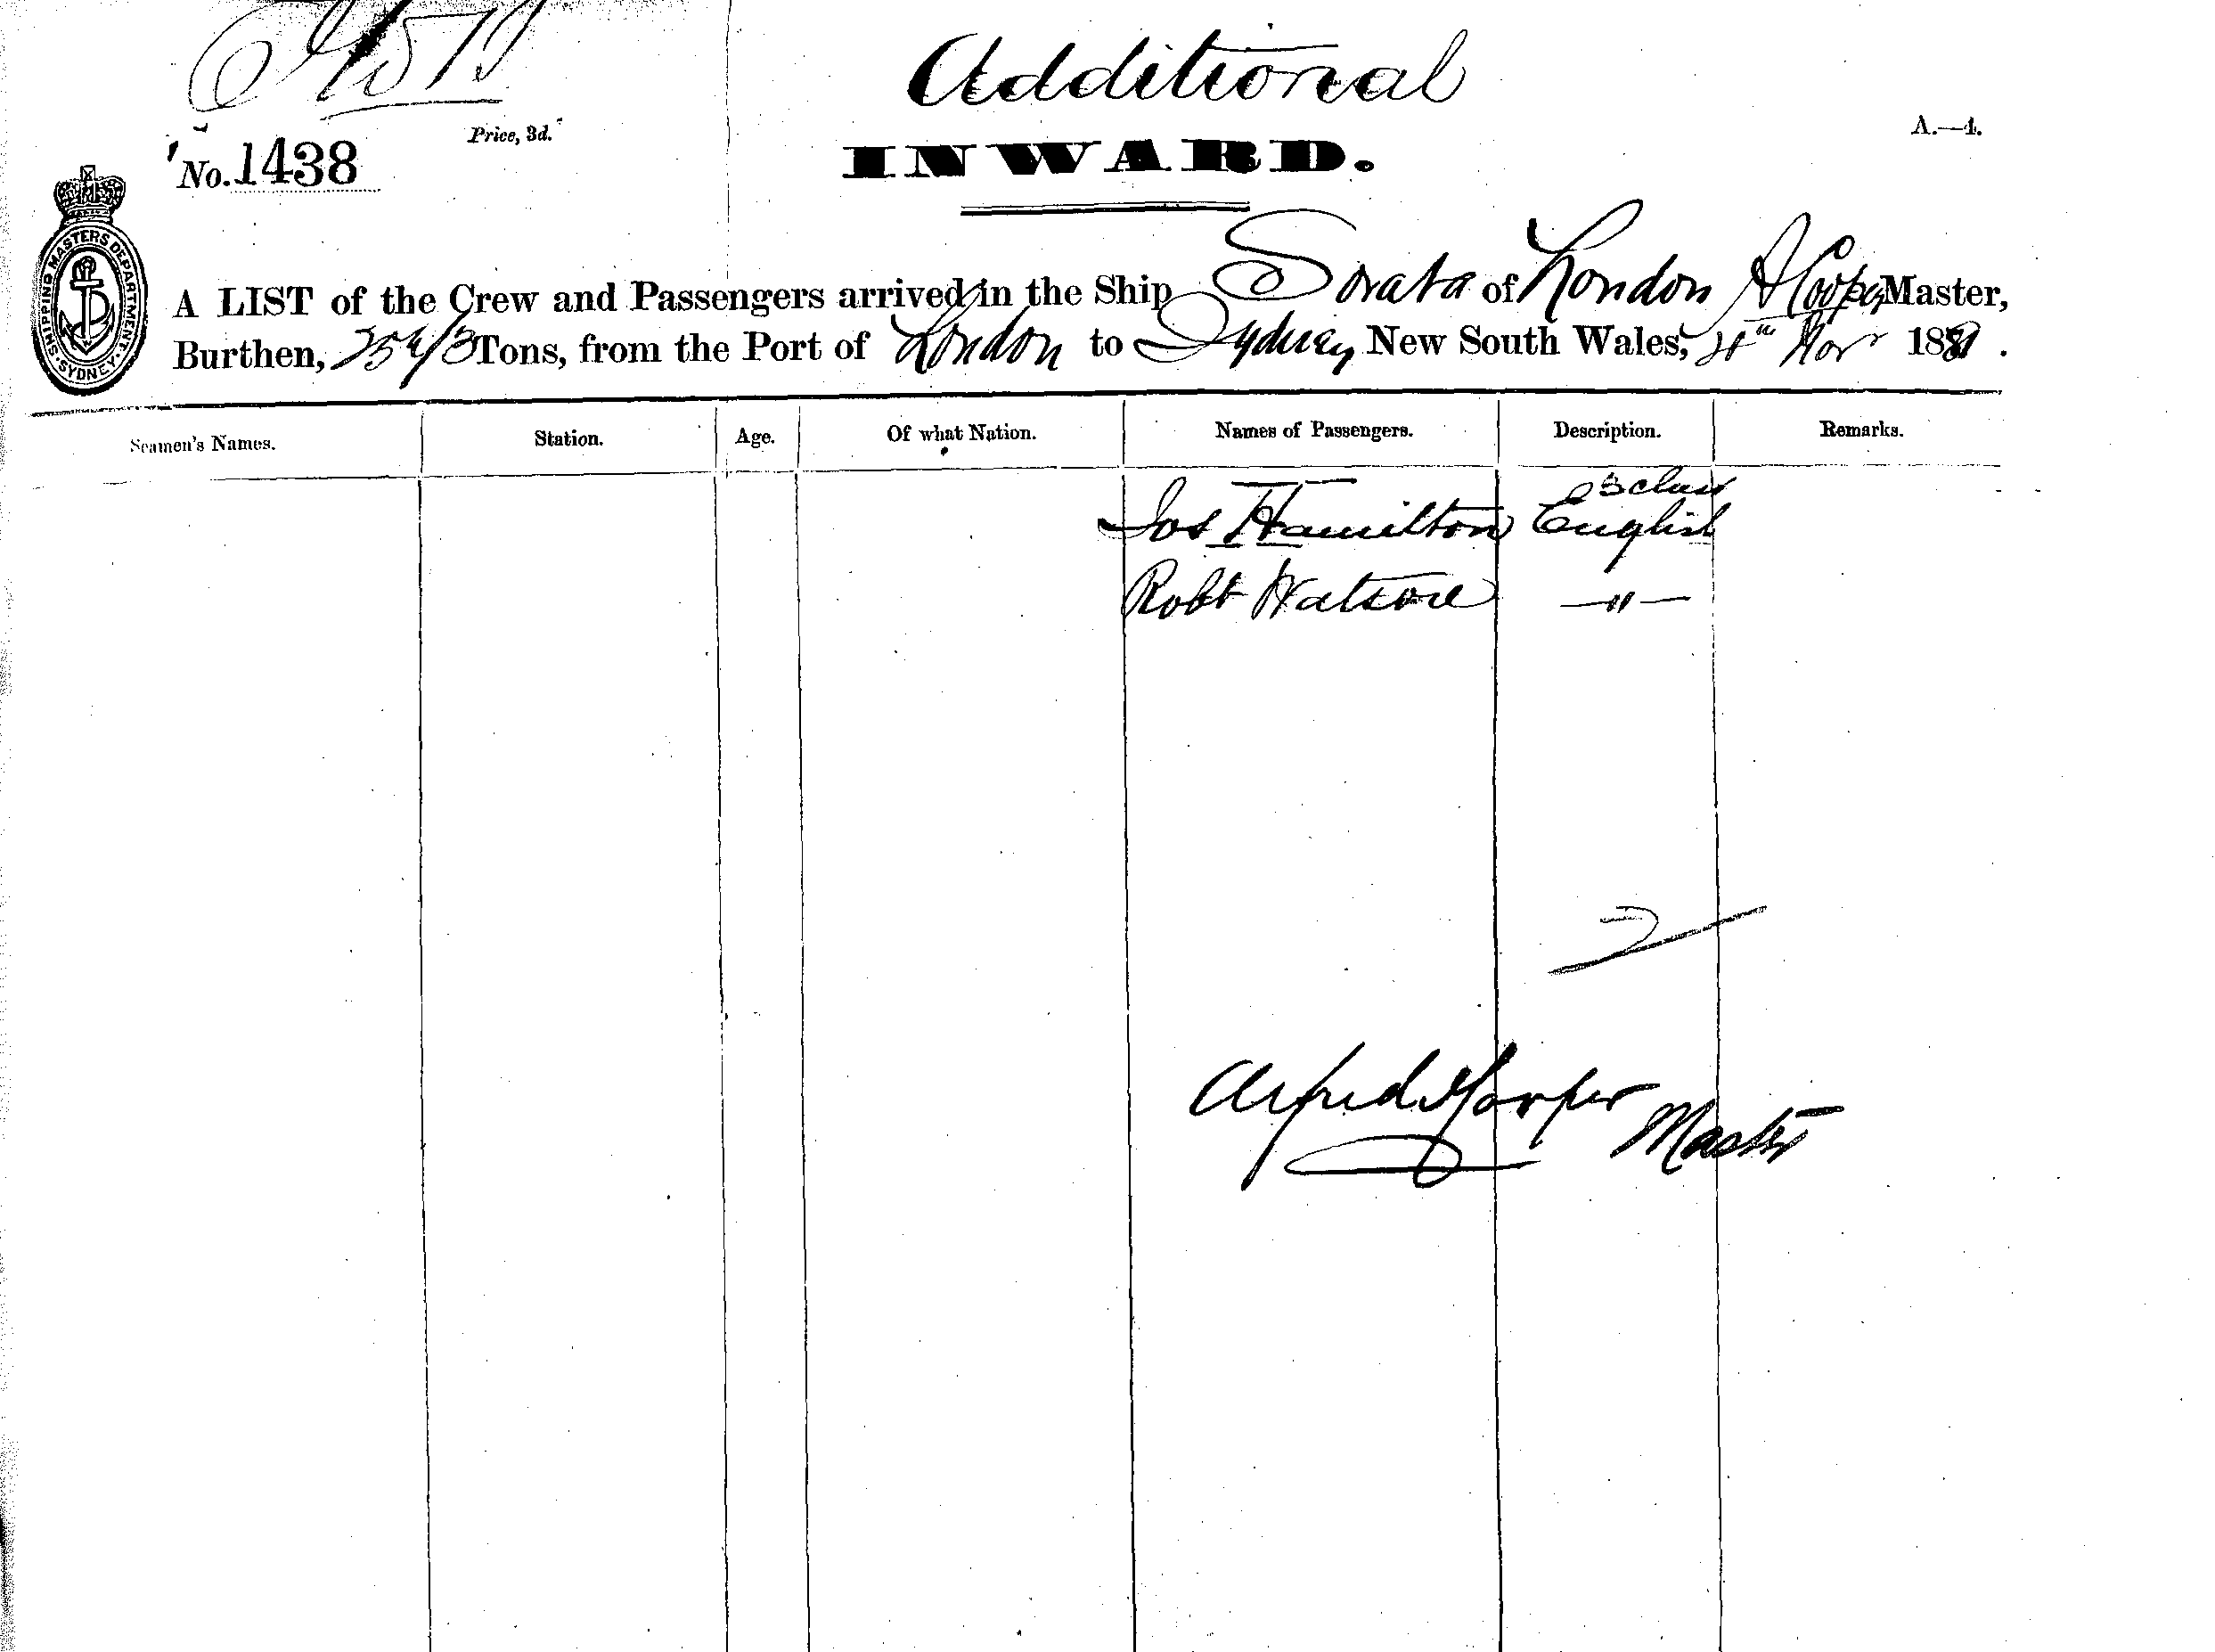 Additional
Price, 3d.
A.—4.
No. 1438
INWARD.
SHIPPING MASTERS DEPARTMENT. SYDNEY.
A LIST of the Crew and Passengers arrived in the Ship Sorata of London Master,
Burthen, Tons, from the Port of London to Sydney, New South Wales, Nov 1881.
Seamen's Names. Station. Age. Of what Nation. Names of Passengers. Description. Remarks.
3 class
Jos Hamilton English
Robt Watson —"—
2
Alfred Master